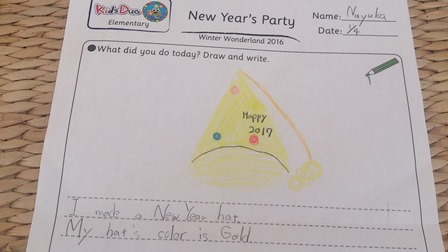 KidsDuo
Elementary
New Year's Party
Winter Wonderland 2016
Name: Nayuka
Date: 1/4
What did you do today? Draw and write.
Happy
2017
I made a New Year hat.
My hat's color is Gold.